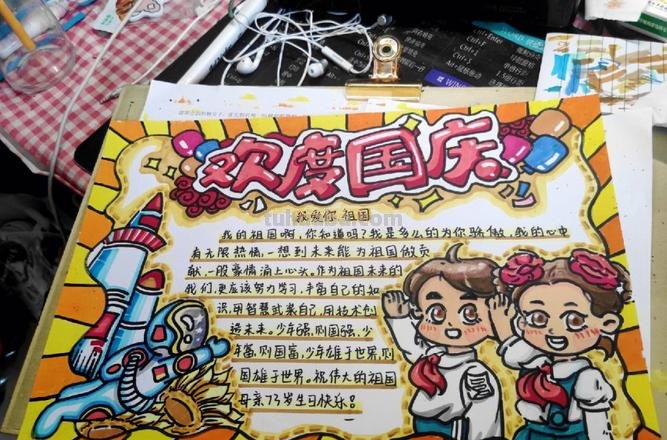 欢度国庆
我爱你 祖国
我的祖国啊,你知道吗?我是多么的为你骄傲,我的心中
有无限热情,一想到未来能为祖国做贡
献,一股豪情涌上心头,作为祖国未来的
我们,更应该努力学习,丰富自己的知
识,用智慧武装自己,用技术创
造未来。少年强,则国强,少
年富,则国富,少年雄于世界,则
国雄于世界。祝伟大的祖国
母亲73岁生日快乐!
Ctrl+Enter
Ctrl+F
Ctrl+S